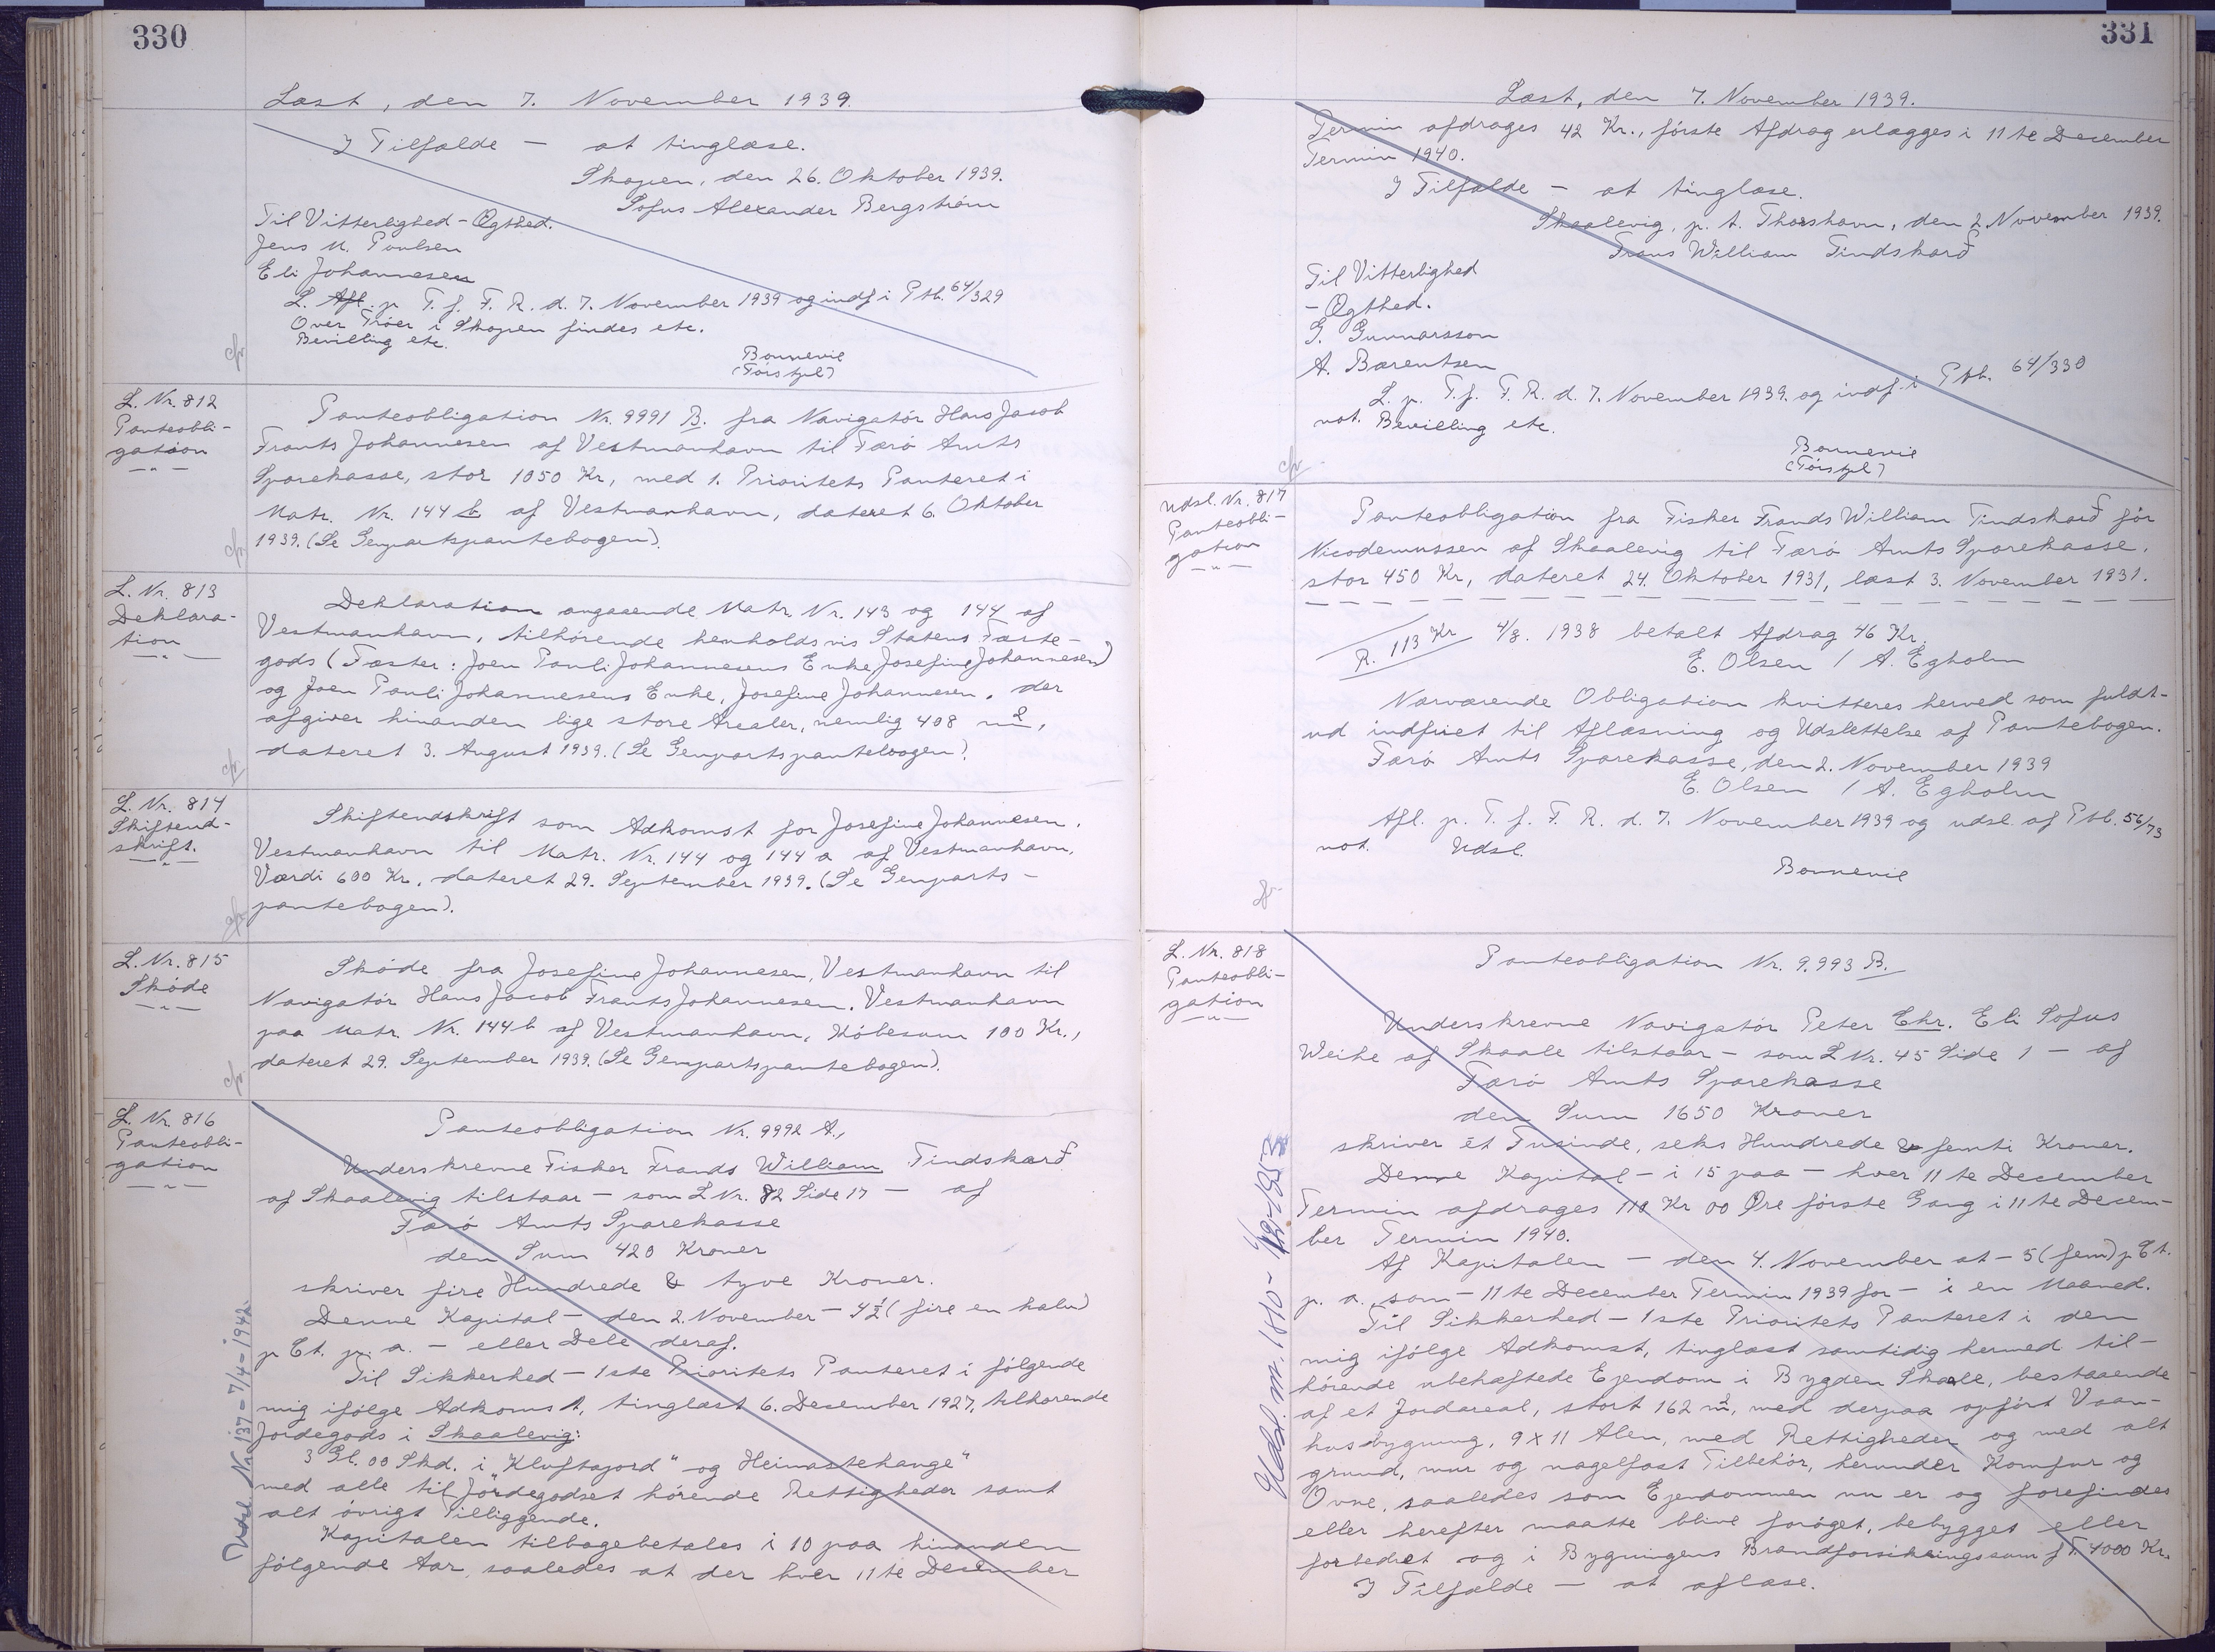 330
Læst, den 7. November 1939.
I Tilfælde — at tinglæse.
Skopen, den 26. Oktober 1939.
Sofus Alexander Bergström
Til Vitterlighed - Ægthed.
Jens M. Poulsen
Eli Johannesen
L. Afl. p. T. f. F. R. d. 7. November 1939 og indf i Ptb. 64/329
Over Tröer i Skopen findes etc.
Bevilling etc.
Bonnevie
cfr.
L. Nr. 812
Panteobli-
gation
— " —
Panteobligation Nr. 9991 B. fra Navigatör Hans Jacob
Frants Johannesen af Vestmanhavn til Færö Amts
Sparekasse, stor 1050 Kr, med 1. Prioritets Panteret i
Matr. Nr. 144 b af Vestmanhavn, dateret 6. Oktober
1939. (Se Genpartspantebogen).
cfr.
L. Nr. 813
Deklara-
tion
— " —
Deklaration angaaende Matr. Nr. 143 og 144 af
Vestmanhavn, tilhörende henholdsvis Statens Fæste-
gods (Fæster: Joen Pauli Johannesens Enke Josefine Johannesen)
og Joen Pauli Johannesens Enke, Josefine Johannesen, der
afgiver hinanden lige store Arealer, nemlig 408 m²,
dateret 3. August 1939. (Se Genpartspantebogen).
cfr.
L. Nr. 814
Skifteud-
skrift.
— " —
Skifteudskrift som Adkomst for Josefine Johannesen,
Vestmanhavn til Matr. Nr. 144 og 144 a af Vestmanhavn,
Værdi 600 Kr, dateret 29. September 1939. (Se Genparts-
pantebogen).
cfr.
L. Nr. 815
Sköde
— " —
Sköde fra Josefine Johannesen, Vestmanhavn til
Navigatör Hans Jacob Frants Johannesen, Vestmanhavn
paa Matr. Nr. 144 b af Vestmanhavn, Köbesum 100 Kr.,
dateret 29. September 1939. (Se Genpartspantebogen).
cfr.
L. Nr. 816
Panteobli-
gation
— " —
Panteobligation Nr. 9992 A.,
Underskrevne Fisker Frands William Tindskarð
af Skaalevig tilstaar — som L Nr. 82 Side 17 — af
Færö Amts Sparekasse
den Sum 420 Kroner
skriver fire Hundrede & tyve Kroner.
Denne Kapital — den 2. November — 4½ (fire en halv)
p Ct. p. a. — eller Dele deraf.
Til Sikkerhed — 1ste Prioritets Panteret i fölgende
mig ifölge Adkomst, tinglæst 6. December 1927, tilhørende
Jordegods i Skaalevig:
3 Gl. 00 Skd. i "Kluftajord" og Heimastehauge"
med alle til Jordegodset hörende Rettigheder samt
alt övrigt Tilliggende.
Kapitalen tilbagebetales i 10 paa hinanden
fölgende Aar, saaledes at der hver 11te December
Udsl Nr. 137 - 7/4 - 1942.
331
Læst, den 7. November 1939.
Termin afdrages 42 Kr., förste Afdrag erlægges i 11te December
Termin 1940.
I Tilfælde — at tinglæse.
Skaalevig, p. t. Thorshavn, den 2. November 1939.
Frans William Tindskarð
Til Vitterlighed
- Ægthed.
G. Gunnarsson
A. Bærentsen
L. p. T. f. F. R. d. 7. November 1939. og indf. i Ptb. 64/330
not. Bevilling etc.
Bonnevie
cfr
Udsl. Nr. 817
Panteobli-
gation
— " —
Panteobligation fra Fisker Frands William Tindskarð för
Nicodemussen af Skaalevig til Færö Amts Sparekasse,
stor 450 Kr, dateret 24. Oktober 1931, læst 3. November 1931.
R. 113 Kr 4/8. 1938 betalt Afdrag 46 Kr.
E. Olsen / A. Egholm
Nærværende Obligation kvitteres herved som fuldt-
ud indfriet til Aflæsning og Udslettelse af Pantebogen.
Færö Amts Sparekasse, den 2. November 1939
E. Olsen / A. Egholm
Afl. p. T. f. F. R. d. 7. November 1939 og udsl. af Ptb. 56/73
not. Udsl.
Bonnevie
cfr.
L. Nr. 818
Panteobli-
gation
— " —
Panteobligation Nr. 9.993 B.
Underskrevne Navigatör Peter Chr. Eli Sofus
Weihe af Skaale tilstaar — som L Nr. 45 Side 1 — af
Færö Amts Sparekasse
den Sum 1650 Kroner
skriver ét Tusinde, seks Hundrede & femti Kroner.
Denne Kapital — i 15 paa — hver 11te December
Termin afdrages 110 Kr 00 Øre förste Gang i 11te Decem-
ber Termin 1940.
Af Kapitalen — den 4. November at — 5 (fem) p Ct.
p. a. som — 11te December Termin 1939 for — i en Maaned.
Til Sikkerhed — 1ste Prioritets Panteret i den
mig ifölge Adkomst, tinglæst samtidig hermed til-
hörende ubehæftede Ejendom i Bygden Skaale, bestaaende
af et Jordareal, stort 162 m², med derpaa opfört Vaan-
husbygning, 9 x 11 Alen, med Rettigheder og med alt
grund, mur og nagelfast Tilbehör, herunder Komfur og
Ovne, saaledes som Ejendommen nu er og forefindes
eller herefter maatte blive foröget, bebygget eller
forbedret og i Bygningens Brandforsikringssum f. T. 4000 Kr.
I Tilfælde — at aflæse.